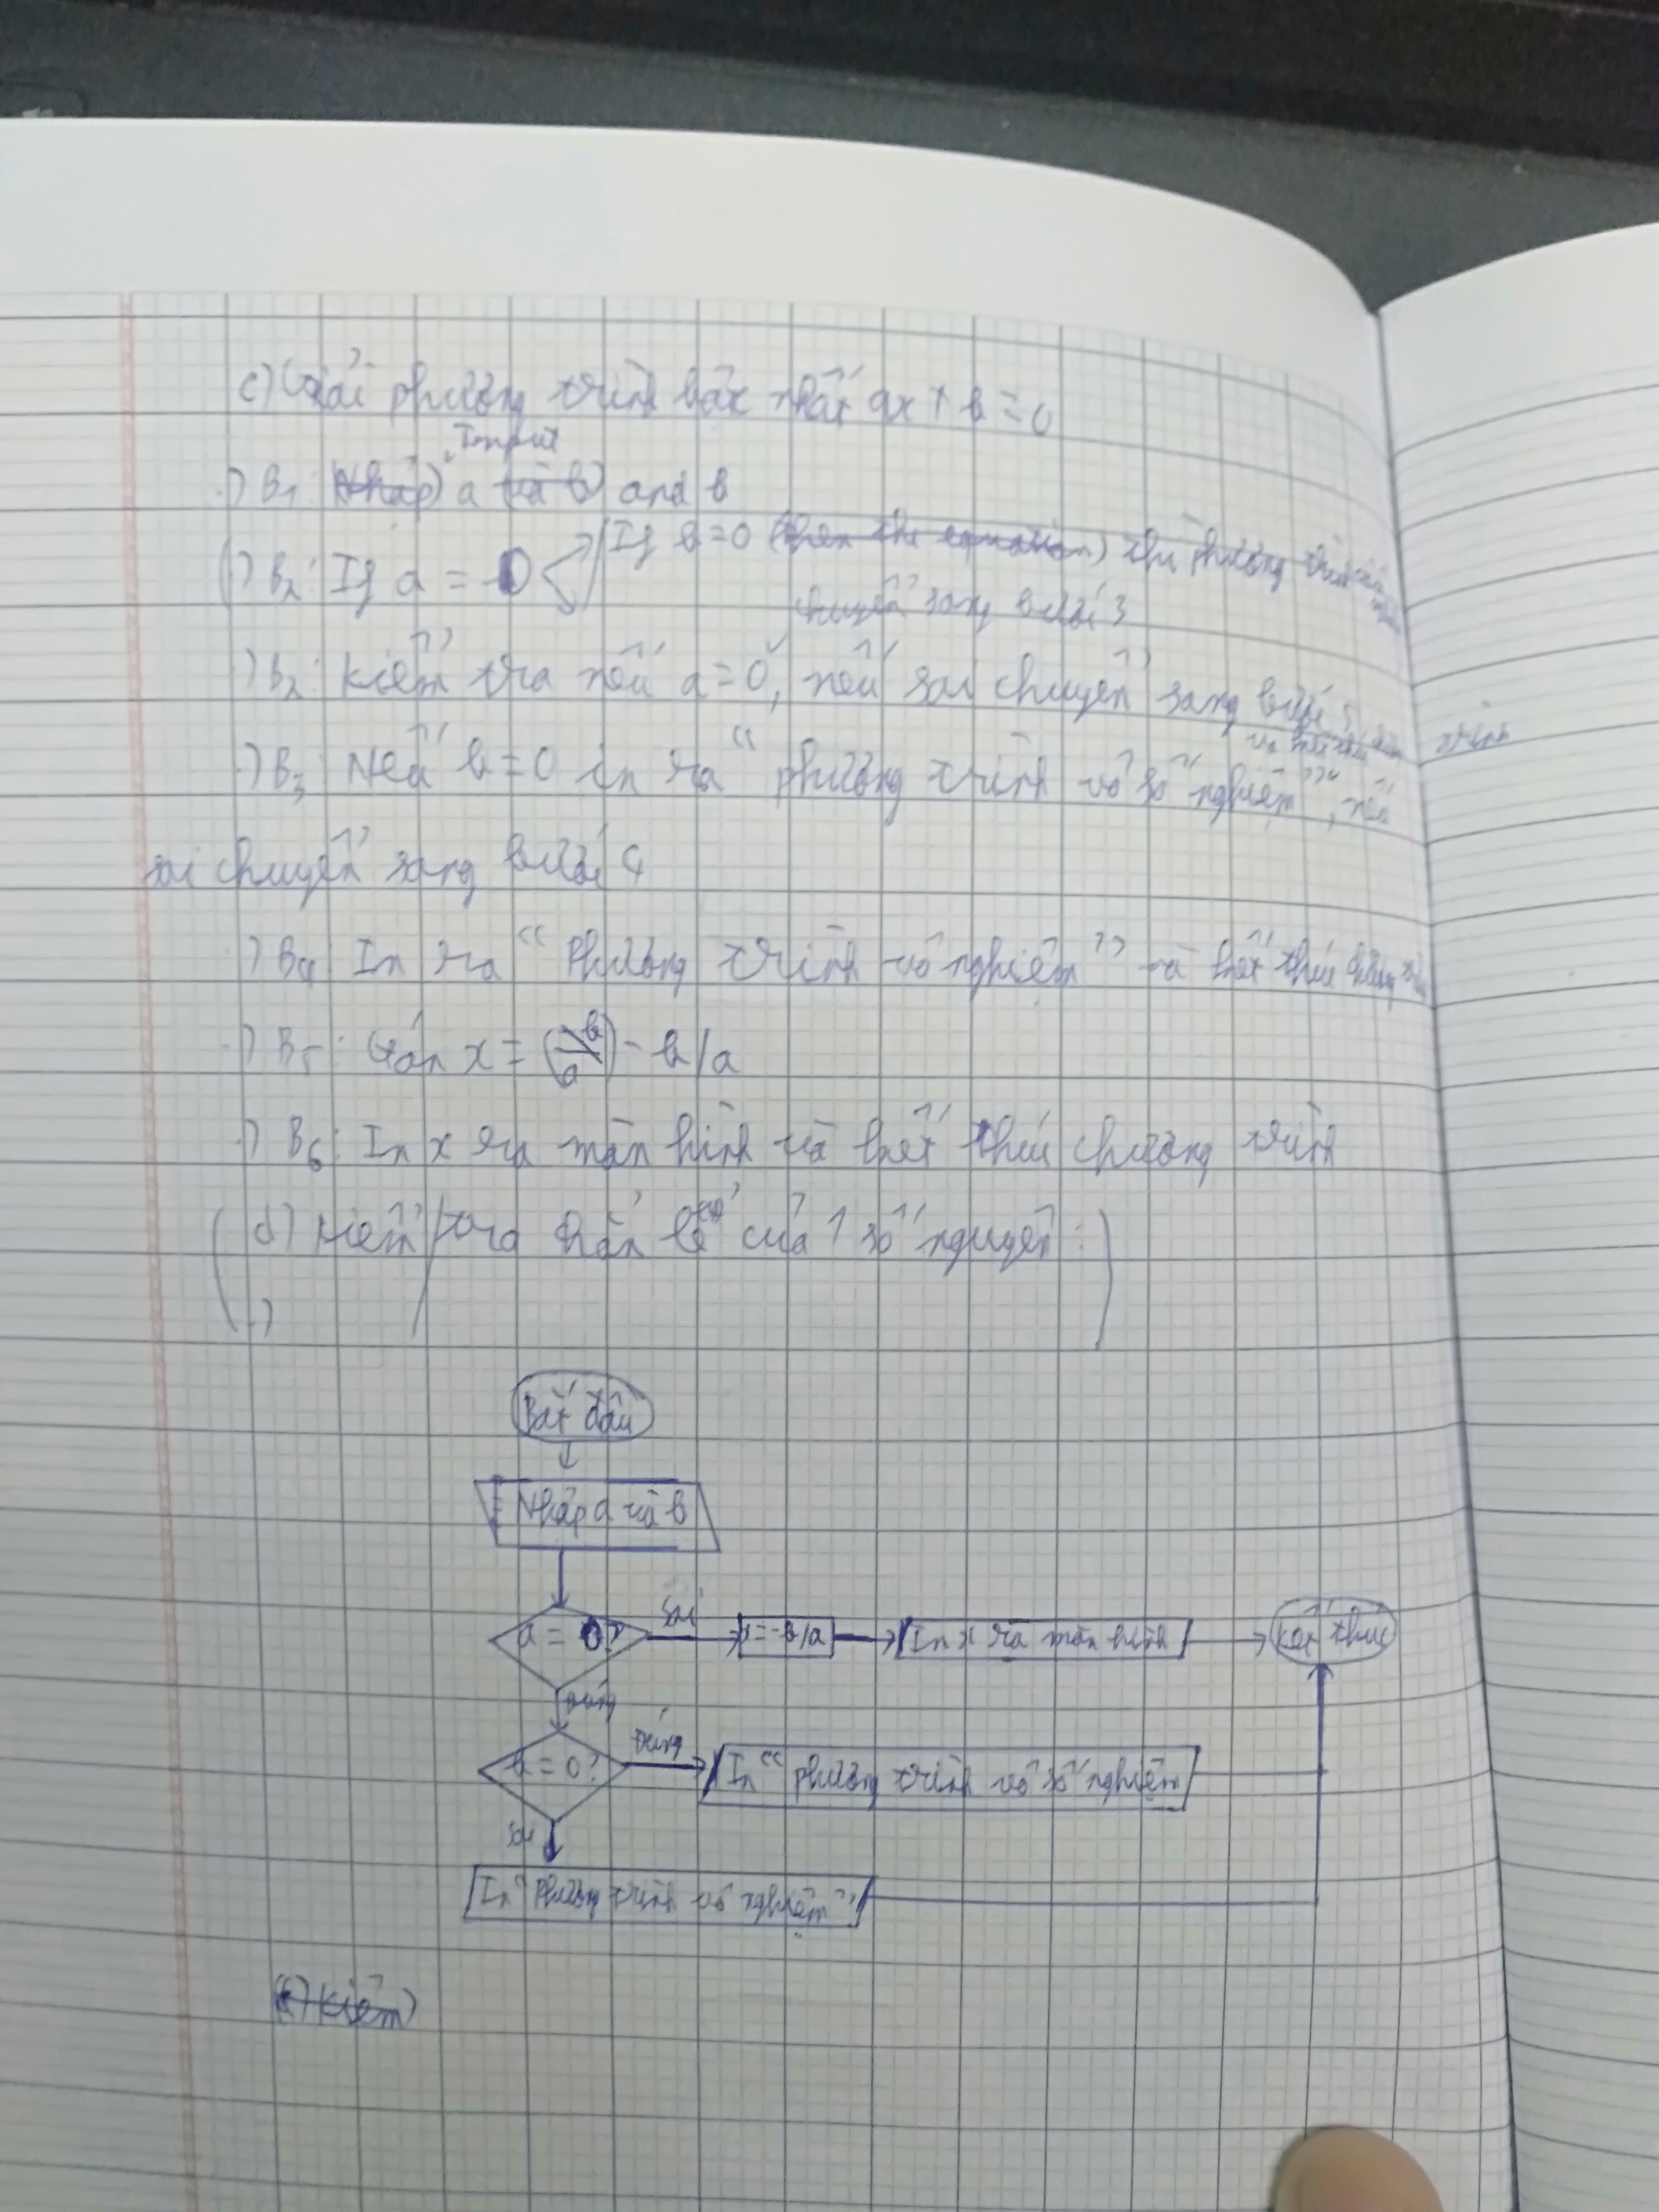 c) Giải phương trình bậc nhất ax + b = 0
Input
.) B1: (Nhập) a (và b) and b
(.) B2: If a = 0 If b = 0 (then the equation) thì phương trình
chuyển sang bước 3
.) B2: Kiểm tra nếu a = 0, nếu sai chuyển sang bước 5
và kết thúc chương trình
.) B3 Nếu b = 0 in ra " phương trình vô số nghiệm", nếu
sai chuyển sang bước 4
.) B4: In ra " Phương trình vô nghiệm" và kết thúc chương trình
.) B5: Gán x = (-b/a) - b/a
.) B6: In x ra màn hình và kết thúc chương trình
( d) Kiểm tra chẵn lẻ của 1 số nguyên: )
.)
Bắt đầu
Nhập a và b
a = 0?
Sai
x = -b/a
In x ra màn hình
Kết thúc
Đúng
b = 0?
Đúng
In " phương trình vô số nghiệm
Sai
In " Phương trình vô nghiệm "
Kiểm)